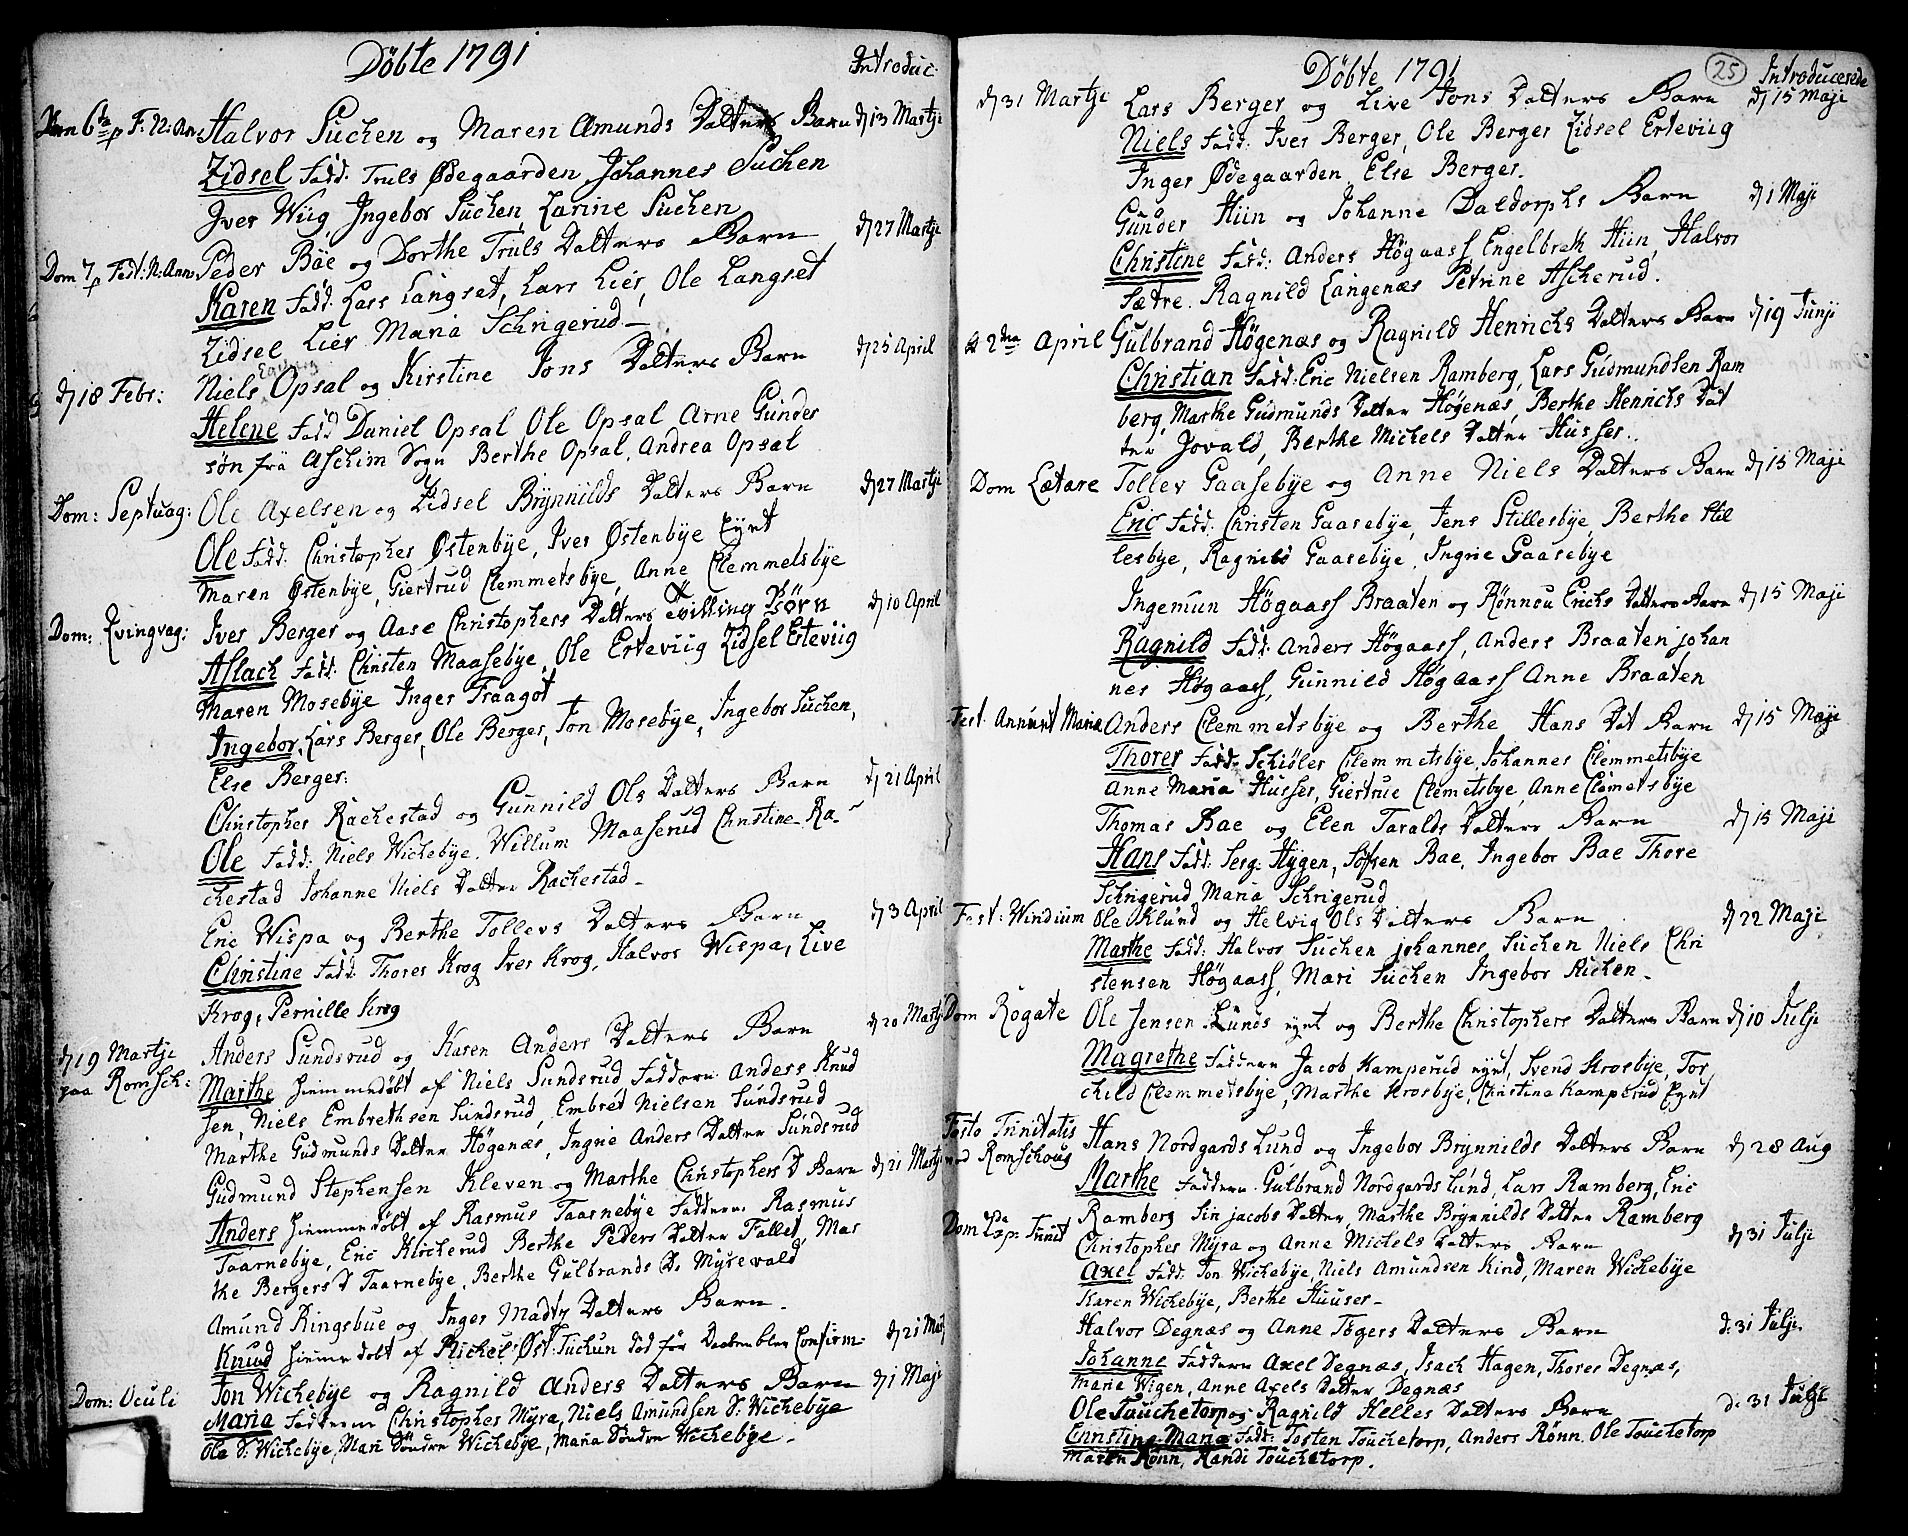 Döbte 1791
Introduc:
Dom 6ta p F: N: An: Halvor Suchen og Maren Amunds Datters Barn d 13 Martji
Zidsel Fadd: Truls Ødegaarden Johannes Suchen
Iver Wiig, Ingebor Suchen, Karine Suchen
Dom 7 p Fest: N: Ann: Peder Bae og Dorthe Truls Datters Barn d 27 Martji
Karen Fadd: Lars Langset, Lars Lier, Ole Langset
Zidsel Lier Maria Schrigerud
d 18 Febr: Niels Opsal og Kirstine Jons Datters Barn d 25 April
Helene Fadd Daniel Opsal Ole Opsal Arne Gunder
søn fra Aschim Sogn Berthe Opsal, Andrea Opsal
Dom: Septuag: Ole Axelsen og Zidsel Brynnilds Datters Barn d 27 Martji
Ole Fadd: Christopher Østenbye, Iver Østenbye Eynt
Maren Østenbye, Giertrud Clemmetsbye, Anne Clemmetsbye
Dom: Qvinqvag: Iver Berger og Aase Christophers Datters Tvilling Børn d 10 April
Aslach Fadd: Christen Maasebye, Ole Erteviig Zidsel Erteviig
Maren Mosebye Inger Traagot
Ingebor, Lars Berger, Ole Berger, Jon Mosebye, Ingebor Suchen,
Else Berger:
Christopher Rachestad og Gunnild Ols Datters Barn d 21 April
Ole Fadd: Niels Wichebye. Willum Maaserud Christine Ra-
chestad Johanne Niels Datter Rachestad
Eric Wispa og Berthe Tollevs Datters Barn d 3 April
Christine Fadd Thores Krog Iver Krog, Halvor Wispa, Live
Krog, Pernille Krog
d 19 Martji Anders Sundsrud og Karen Anders Datters Barn d 20 Martji
paa Romsch: Marthe hiemmedøbt af Niels Sundsrud Faddere Anders Knud
sen, Niels Embrethsen Sundsrud, Embret Nielsen Sundsrud
Marthe Gudmunds Datter Høgenæs, Ingrie Anders Datter Sundsrud
Gudmund Stephensen Kleven og Marthe Christophers D Barn d 21 Martji
Anders hiemme døbt af Rasmus Taarnebye Faddere Rasmus
Taarnebye, Eric Kircherud Berthe Peders Datter Tallet, Mar
the Bergers D Taarnebye, Berthe Gulbrands D. Myrevold
Amund Ringsbue og Inger Madtz Datters Barn
Knud hiemme døbt af Michel Øst: Tuchun død før Daaben blev Confirm: d 21 Mart
Dom: Oculi Jon Wichebye og Ragnild Anders Datters Barn d 1 Maji
Maria Fadderne Christopher Myra, Niels Amundsen S: Wichebye
Ole S: Wichebye, Mari Søndre Wichebye, Maria Søndre Wichebye
Döbte 1791
25
Introducerede
d 31 Martji Lars Berger og Live Jons Datters Barn d 15 Maji
Niels Fadd: Iver Berger, Ole Berger Zidsel Erteviig
Inger Ødegaarden, Else Berger.
Gunder Hiin og Johanne Daldorphs Barn d 1 Maji
Christine Fadd: Anders Høgaass, Engelbrek Hiin, Halvor
Sætre. Ragnild Langenæs Petrine Ascherud.
d 2den April Gulbrand Høgenæs og Ragnild Henrichs Datters Barn d 19 Junji
Christian Fadd: Eric Nielsen Ramberg, Lars Gudmundsen Ram
berg, Marthe Gudmunds Datter Høgenæs, Berthe Henrichs Dat
ter Jovald, Berthe Michels Datter Husser.
Dom Lætare Tollev Gaasebye og Anne Niels Datters Barn d 15 Maji
Eric Fadd: Christen Gaasebye, Jens Stillesbye, Berthe Stil
lesbye, Ragnild Gaasebye, Ingrie Gaasebye
Ingemun Høgaass Braaten og Rønnou Erichs Datters Barn d 15 Maji
Ragnild Fadd: Anders Høgaass, Anders Braaten Johan
nes Høgaass, Gunnild Høgaass Anne Braaten
Fest Annunt Maria Anders Clemmetsbye og Berthe Hans Dat Barn d 15 Maji
Thorer Fadd: Schiøler Clemmetsbye, Johannes Clemmetsbye
Anne Maria Husser, Giertrue Clemetsbye, Anne Clemetsbye
Thomas Bae og Elen Taralds Datters Barn d 15 Maji
Hans Fadd: Serg: Hygen, Søfren Bae, Ingebor Bae Thore
Schrigerud, Maria Schrigerud
Fest: Viridium Ole Klund og Helvig Ols Datters Barn d 22 Maji
Marthe Fadd: Halvor Suchen Johannes Suchen Niels Chri
stensen Høgaass, Mari Suchen Ingebor Suchen
Dom Rogate Ole Jensen Lunds eynt og Berthe Christophers Datters Barn d 10 Julji
Magrethe Faddere Jacob Kamperud eynt, Svend Krosbye, Tor
child Clemmetsbye, Marthe Krosbye, Christine Kamperud Eynt
Festo Trinitatis Hans Nordgards Lund og Ingebor Brynnilds Datters Barn d 28 Aug
ved Romschoug Marthe Faddere Gulbrand Nordgards Lund, Lars Ramberg, Eric
Ramberg Siri Jacobs Datter, Marthe Brynnilds Datter Ramberg
Dom 2da p. Trinit Christopher Myra og Anne Michels Datters Barn d 31 Julji
Axel Fadd: Jon Wichebye, Niels Amundsen Kind, Maren Wichebye
Karen Wichebye, Berthe Huuser
Halvor Degnæs og Anne Tøgers Datters Barn d: 31 Julji
Johanne Faddere Axel Degnæs, Isach Hagen, Thores Degnæs,
Marie Wigen, Anne Axels Datter Degnæs
Ole Touchetorp og Ragnild Helles Datters Barn d: 31 Julji
Christine Maria Fadd: Tosten Touchetorp, Anders Rønn, Ole Touchetorp
Maren Rønn, Randi Touchetorp.